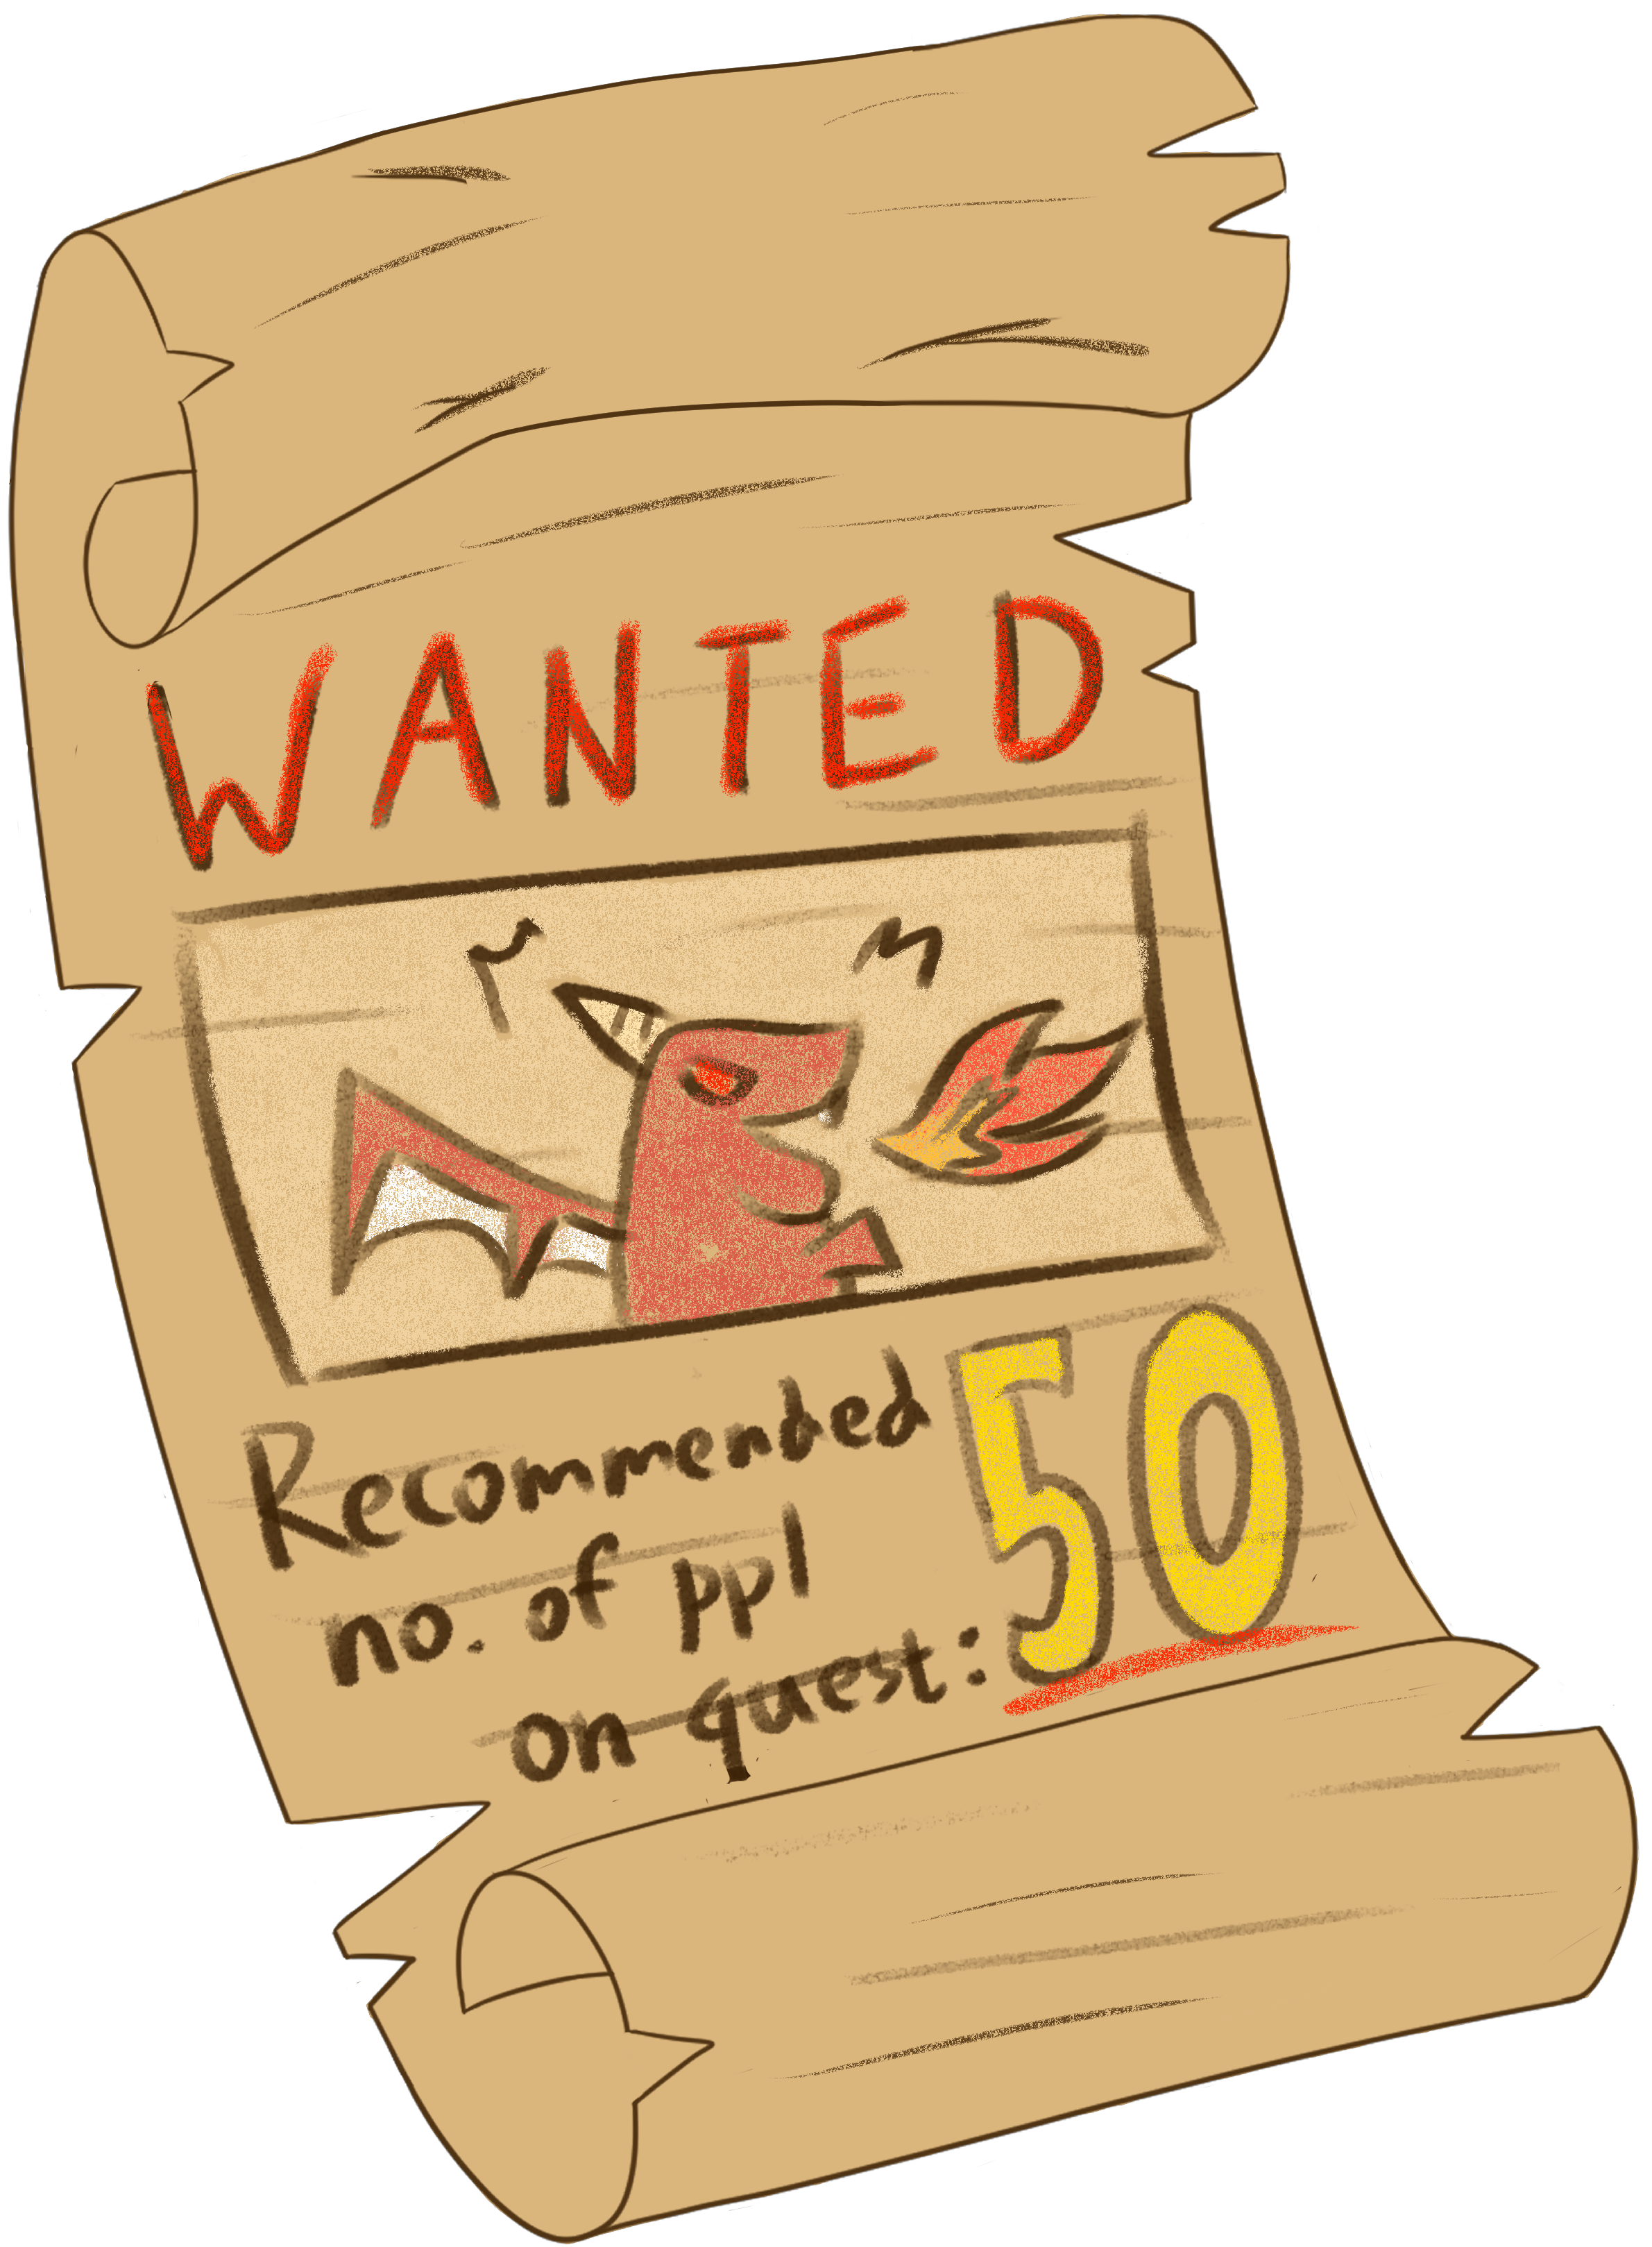 WANTED
Recommended
no. of ppl
on quest: 50